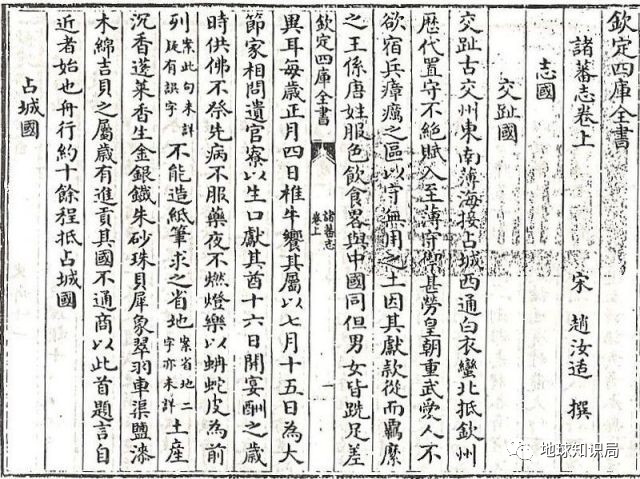 欽定四庫全書
諸蕃志卷上
宋 趙汝适 撰
志國
交趾國
交趾古交州東南薄海接占城西通白衣蠻北抵欽州
歷代置守不絶賦入至薄守禦甚勞皇朝重武愛人不
欲宿兵瘴癘之區以守無用之土因其獻款從而羈縻
之王係唐姓服色飲食畧與中國同但男女皆跣足差
欽定四庫全書
諸蕃志
卷上
一
異耳每歲正月四日椎牛饗其屬以七月十五日為大
節家相問遺官寮以生口獻其酋十六日開宴酬之歲
時供佛不祭先病不服藥夜不燃燈樂以蚺蛇皮為前
列案此句未詳疑有誤字不能造紙筆求之省地案省地二字亦未詳土產
沉香蓬萊香生金銀鐵朱砂珠貝犀象翠羽車渠鹽漆
木綿吉貝之屬歲有進貢其國不通商以此首題言自
近者始也舟行約十餘程抵占城國
占城國
地球知识局